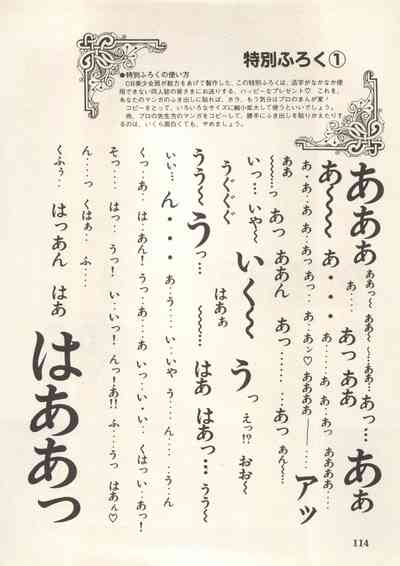 特別ふろく①
●特別ふろくの使い方
CB美少女別が総力をあげて製作した、この特別ふろくは、活字がなかなか使
用できない同人誌の皆さまにお送りする、ハッピーなプレゼント♡ これを、
あなたのマンガのふき出しに貼れば、ホラ、もう気分はプロのまんが家!
コピーをとって、いろいろなサイズに縮小拡大して使うといいでしょう。
尚、プロの先生方のマンガをコピーして、勝手にふき出しを貼りかえたりす
るのは、いくら面白くても、やめましょう。
あああ ああっ〜 ああ〜 〜…ああ… あっ… ああ
あ〜〜 あ・・・ あっ ああ
ああ あ…あ…あっ…あっ…あン♡ああああ――…… アッ
〜〜〜っ あっ ああん あっ……… …あっ あん〜…
いっ… いや〜 いく〜 うっ えっ!? おお〜
うぐぐぐ はあぁ
うう〜 うっ… 〜〜… はあ はあっ… うう〜
いぃ… ん・・・ あ・う・・・い・・いや う・・・ん・・・ う・・ん
くっ・・あ・・ は・・あん!うっ・・あ・・あ いっ・・い・い・・ くはっ・い・・あっ!
そっ・・・ はっ・・うっ! い・・いっ!んっ!あ!! ふ・・・うっ はあん♡
ん・・・っ くはぁ・・ ふ・・・
くふぅ・ はっあん はあ はああっ
114